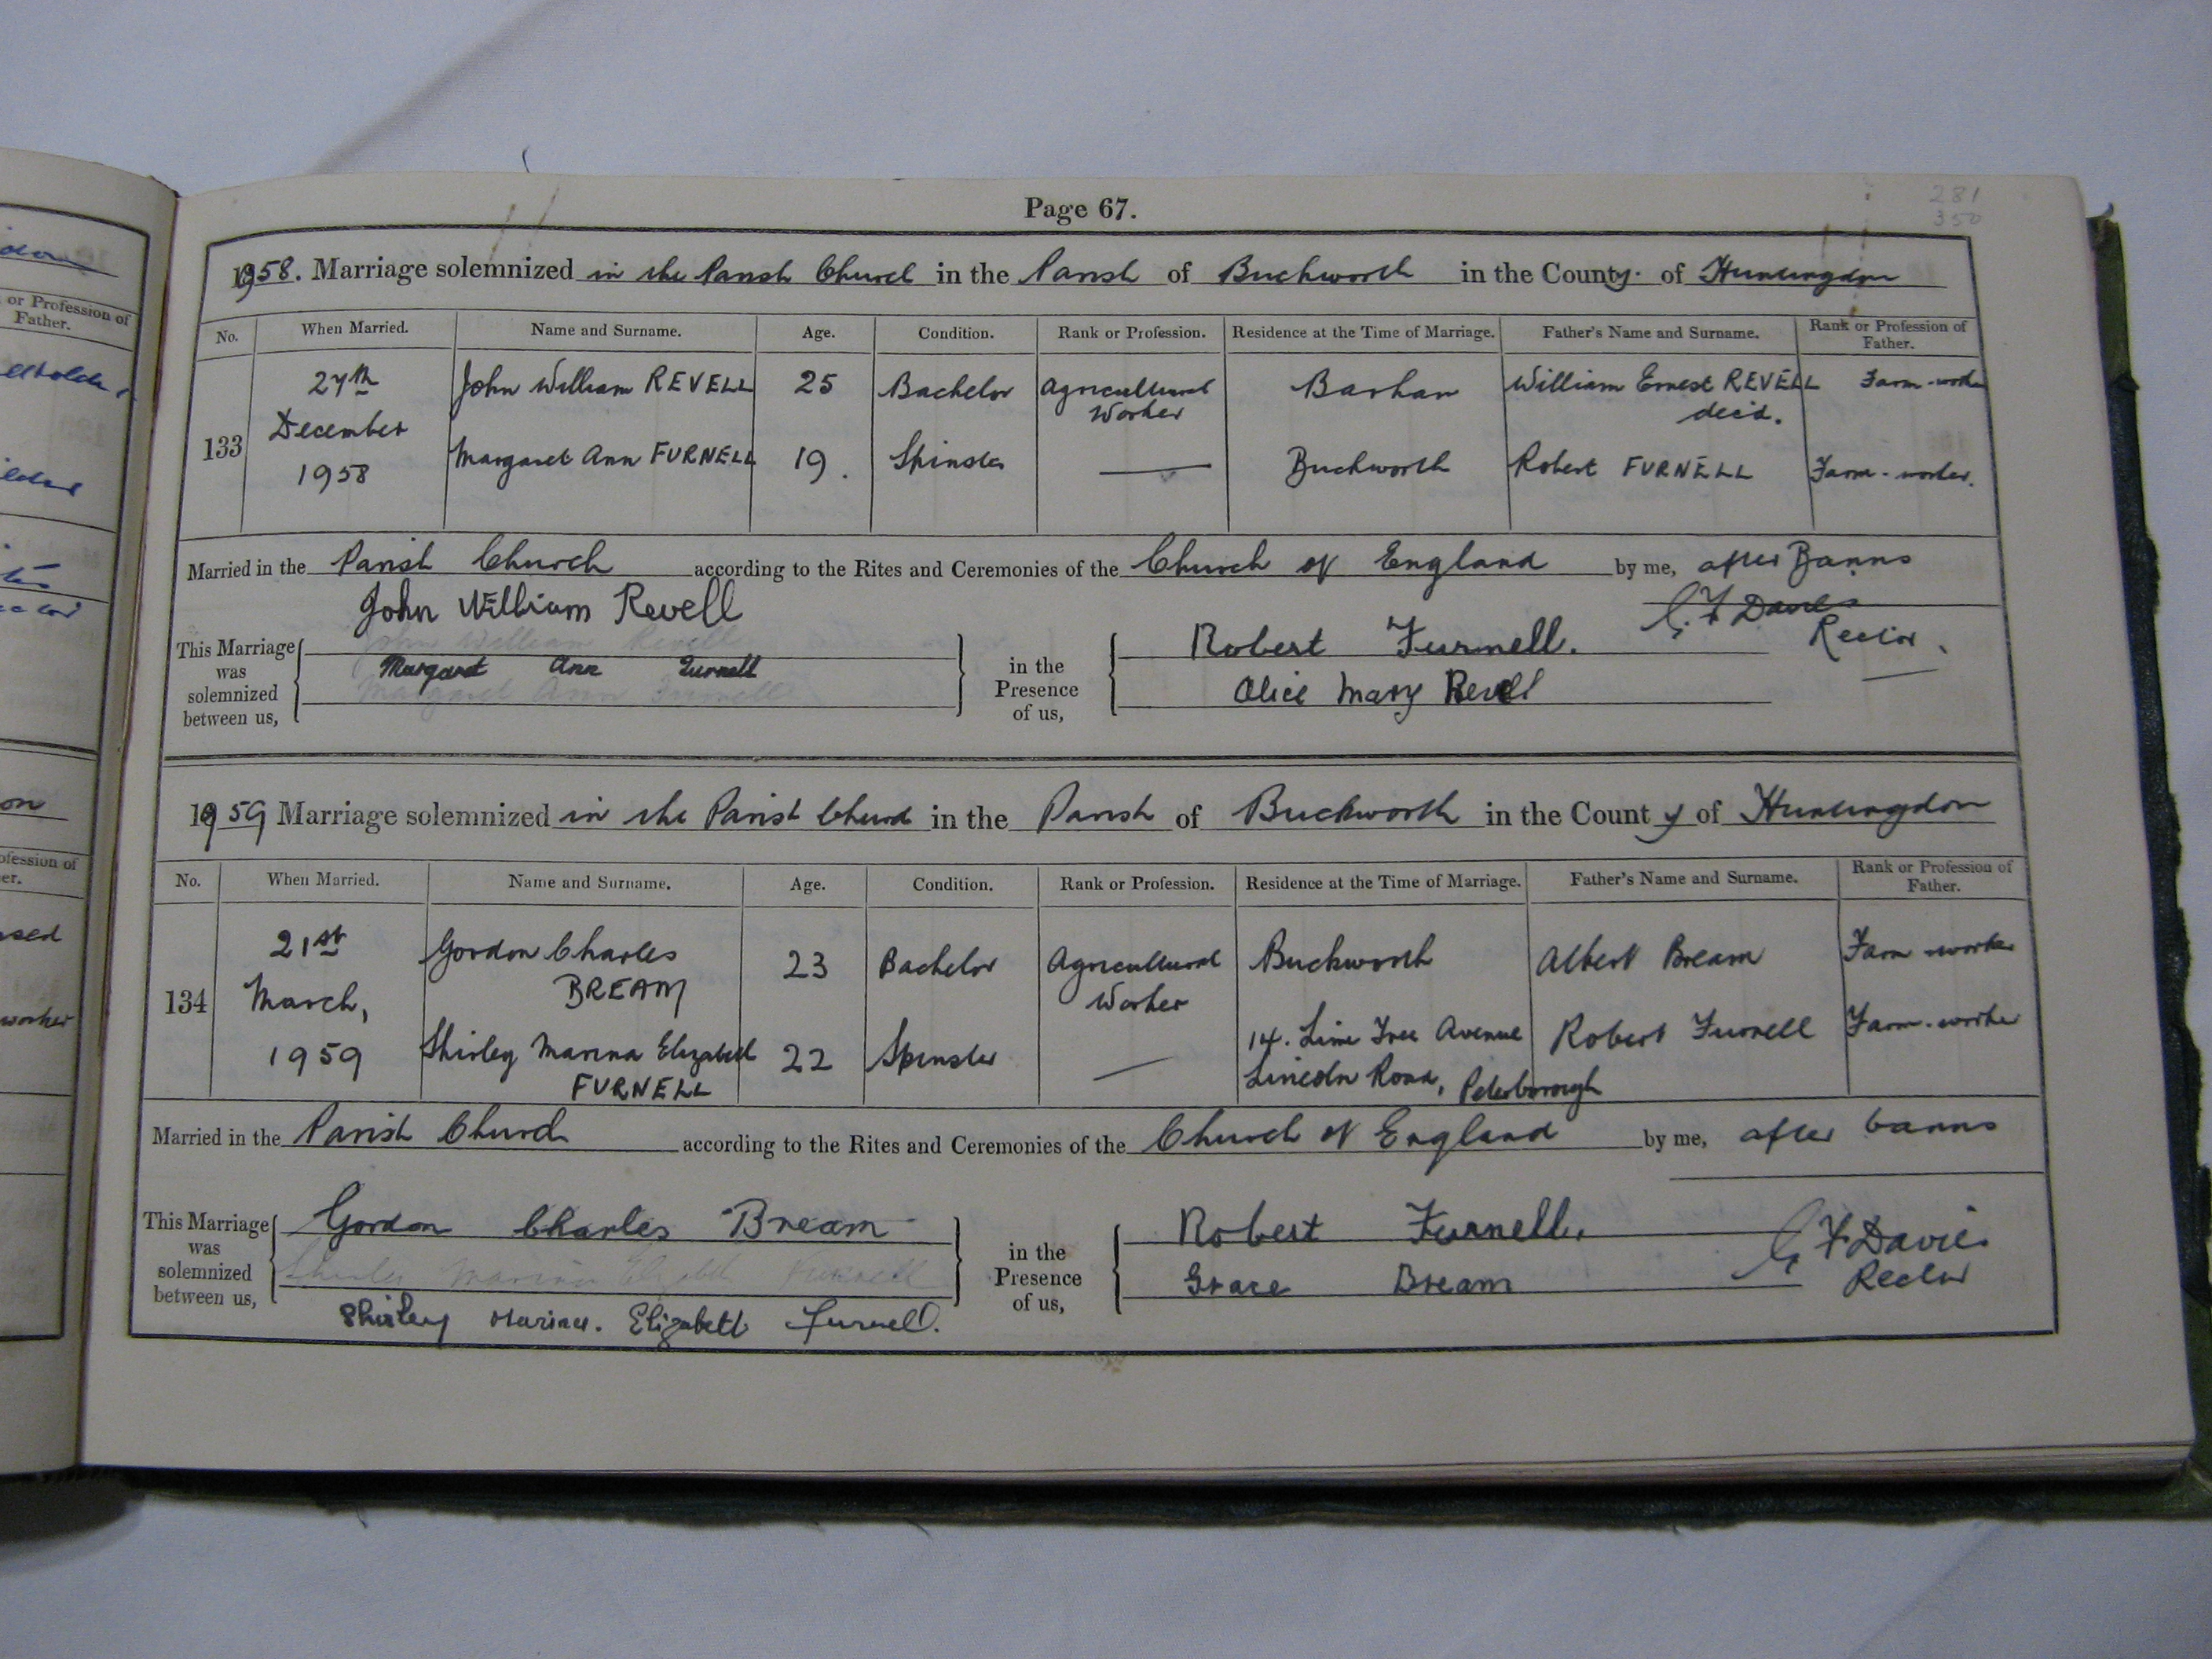 Page 67.
281
350
1958. Marriage solemnized in the Parish Church in the Parish of Buckworth in the County of Huntingdon
No. When Married. Name and Surname. Age. Condition. Rank or Profession. Residence at the Time of Marriage. Father's Name and Surname. Rank or Profession of Father.
133
27th December 1958
John William REVELL 25 Bachelor Agricultural Worker Barham William Ernest REVELL dec'd. Farm-worker
Margaret Ann FURNELL 19. Spinster Buckworth Robert FURNELL Farm-worker.
Married in the Parish Church according to the Rites and Ceremonies of the Church of England by me, after Banns
G. F Davies
Rector.
This Marriage was solemnized between us,
John William Revell
John William Revell
Margaret Ann Furnell
Margaret Ann Furnell
in the Presence of us,
Robert Furnell.
Alice Mary Revell
1959 Marriage solemnized in the Parish Church in the Parish of Buckworth in the County of Huntingdon
No. When Married. Name and Surname. Age. Condition. Rank or Profession. Residence at the Time of Marriage. Father's Name and Surname. Rank or Profession of Father.
134
21st March, 1959
Gordon Charles BREAM 23 Bachelor Agricultural Worker Buckworth Albert Bream Farm-worker
Shirley Marina Elizabeth FURNELL 22 Spinster 14. Lime Tree Avenue Lincoln Road, Peterborough Robert Furnell Farm-worker
Married in the Parish Church according to the Rites and Ceremonies of the Church of England by me, after banns
G F Davies
Rector
This Marriage was solemnized between us,
Gordon Charles Bream
Shirley Marina Elizabeth Furnell
Shirley Marina. Elizabeth Furnell.
in the Presence of us,
Robert Furnell.
Grace Bream
or Profession of
Father.
worker